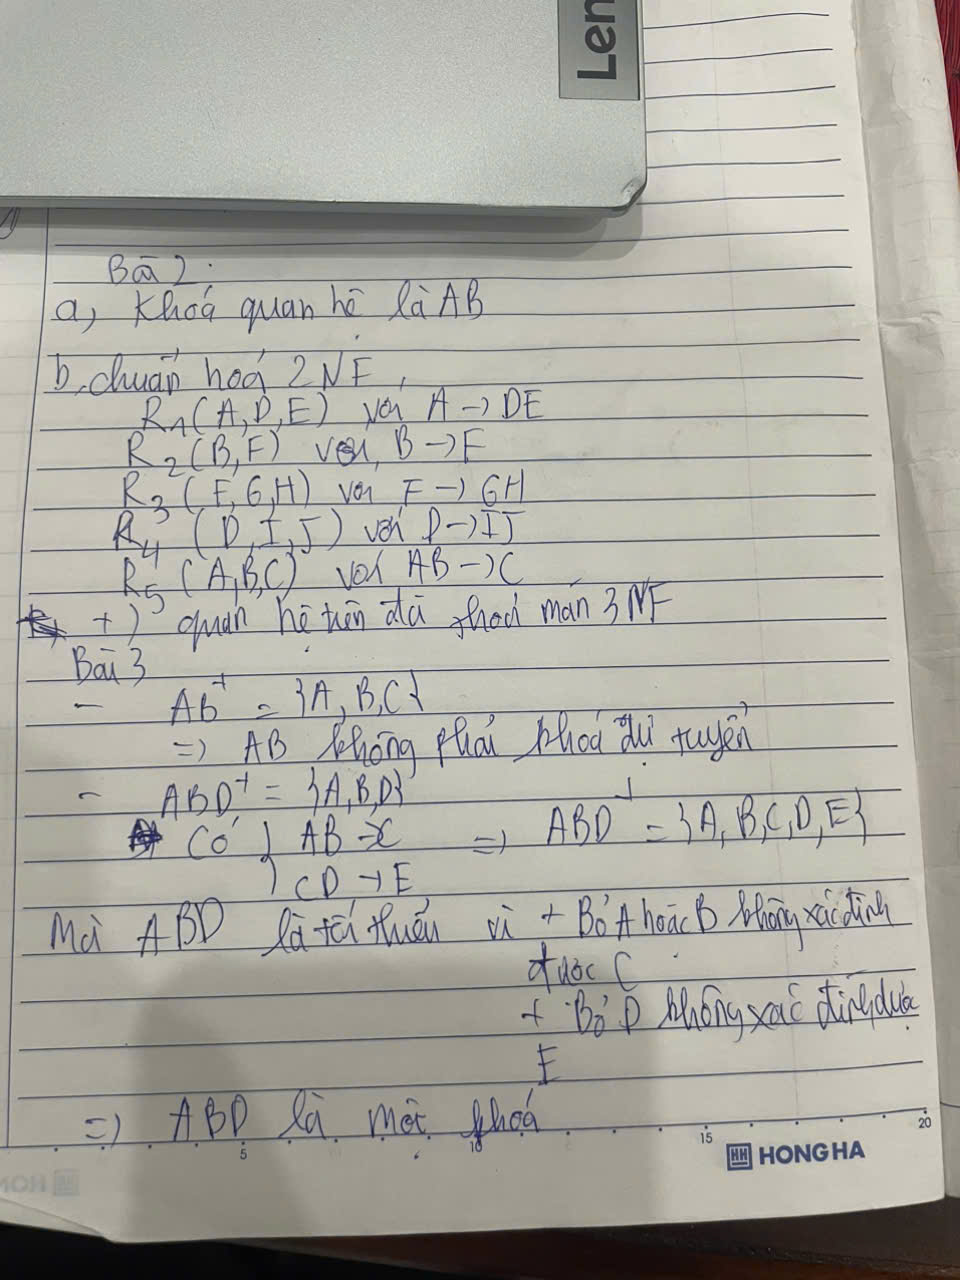 Len
Bài 2:
a, Khoá quan hệ là AB
b, chuẩn hoá 2NF,
R1(A,D,E) với A → DE
R2(B,F) với B → F
R3(F,G,H) với F → GH
R4(D,I,J) với D → IJ
R5(A,B,C) với AB → C
+) quan hệ trên đã thoả mãn 3NF
Bài 3
- AB+ = {A, B, C}
=> AB không phải khoá dự tuyển
- ABD+ = {A,B,D}
Có } AB → C => ABD+ = {A, B, C, D, E}
} CD → E
Mà ABD là tối thiểu vì + Bỏ A hoặc B không xác định
được C
+ Bỏ D không xác định được
E
=> ABD là một khoá
5 10 15 20
HH HONG HA